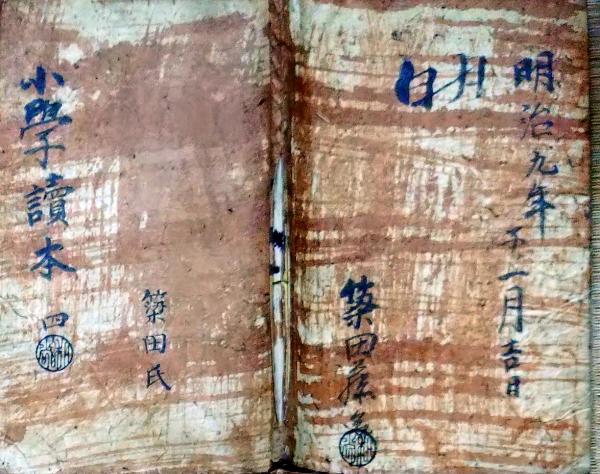 明治九年
子一月吉日
築田
小學讀本
四
築田氏